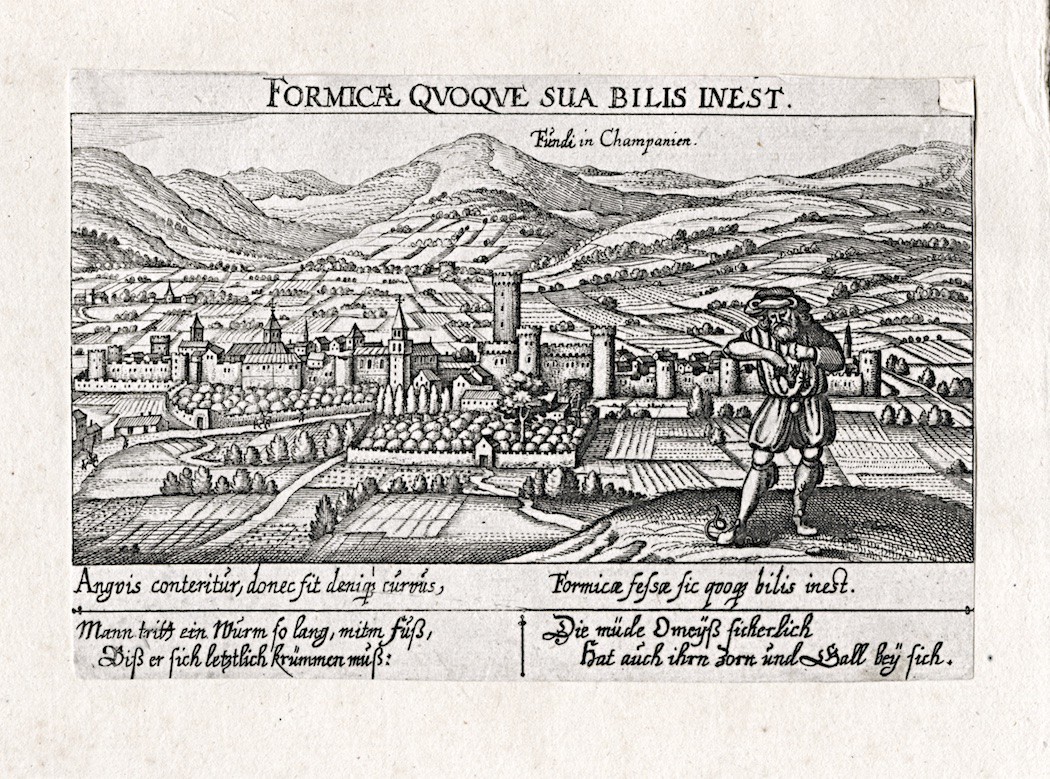 FORMICÆ QVOQVE SUA BILIS INEST.
Fundi in Champanien.
Angvis conteritur, donec fit deniq; curvus,
Formicæ feſsæ ſic qvoq; bilis inest.
Mann tritt ein Wurm ſo lang, mitm Fuß,
Biß er ſich letztlich krümmen muß:
Die müde Omeÿß ſicherlich
Hat auch ihrn Zorn und Gall beÿ ſich.